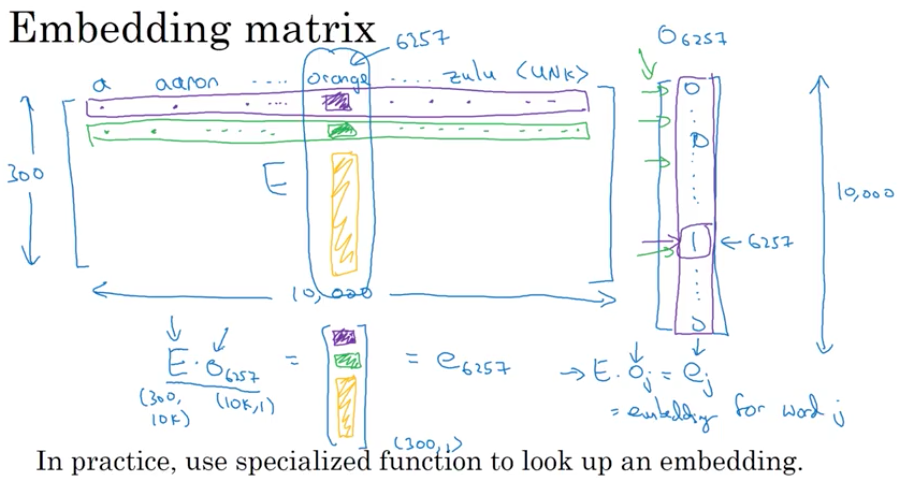 Embedding matrix
6257
O6257
a aaron .... orange .... zulu <UNK>
0
0
300
E
10,000
1 ← 6257
10,000
0
E · O6257 = [ ] = e6257
→ E · Oj = ej
(300, 10K) (10K, 1)
= embedding for word j
(300, 1)
In practice, use specialized function to look up an embedding.